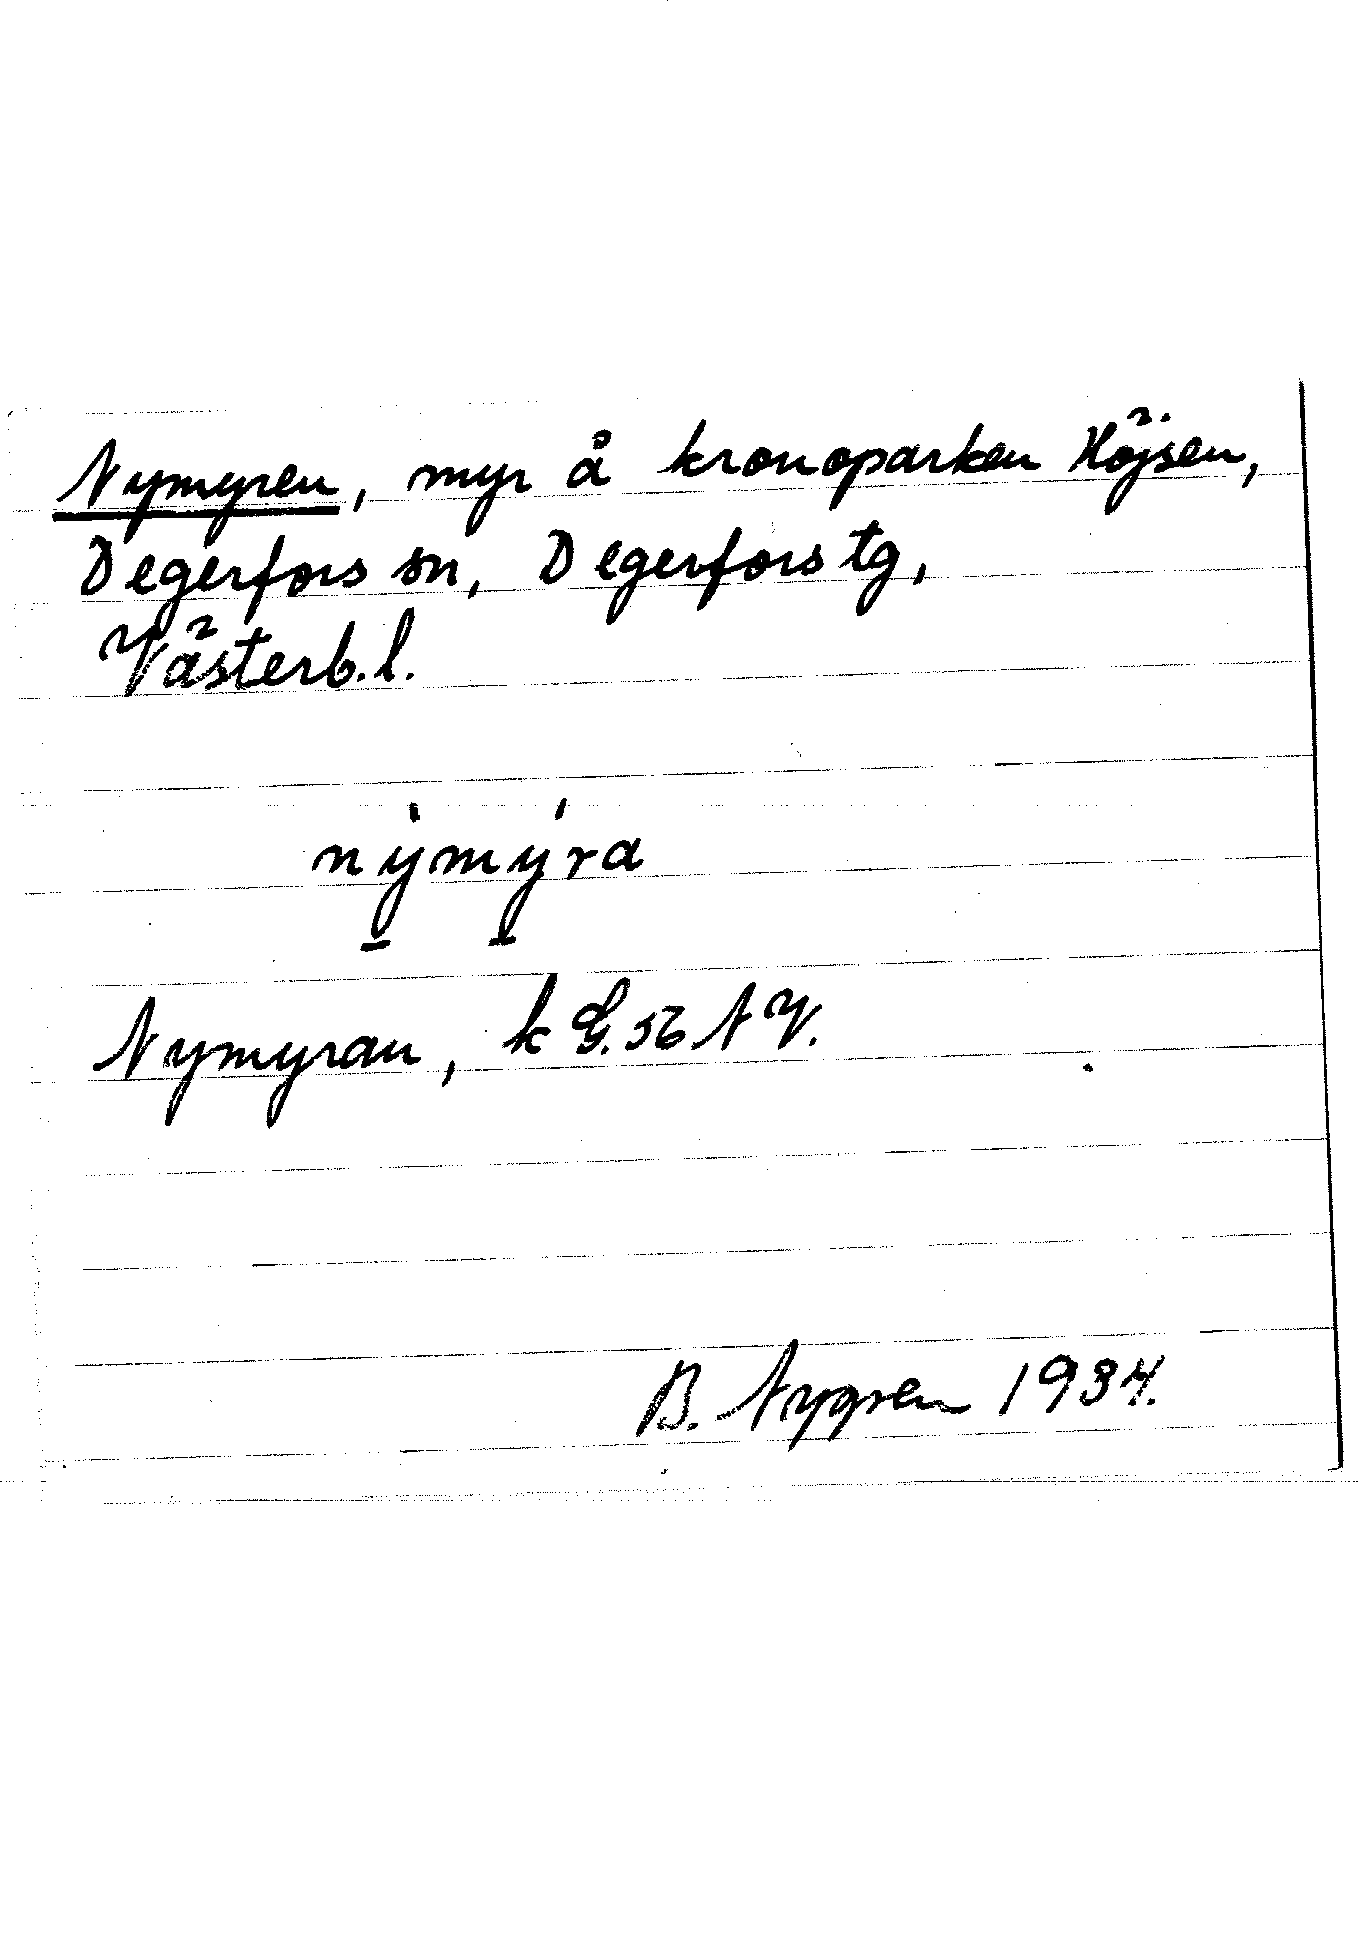 Nymyren, myr å kronoparken Höjsen,
Degerfors sn, Degerfors tg,
Västerb.l.
nýmýra
Nymyran, k G.56 NV.
B. Nygren 1934.